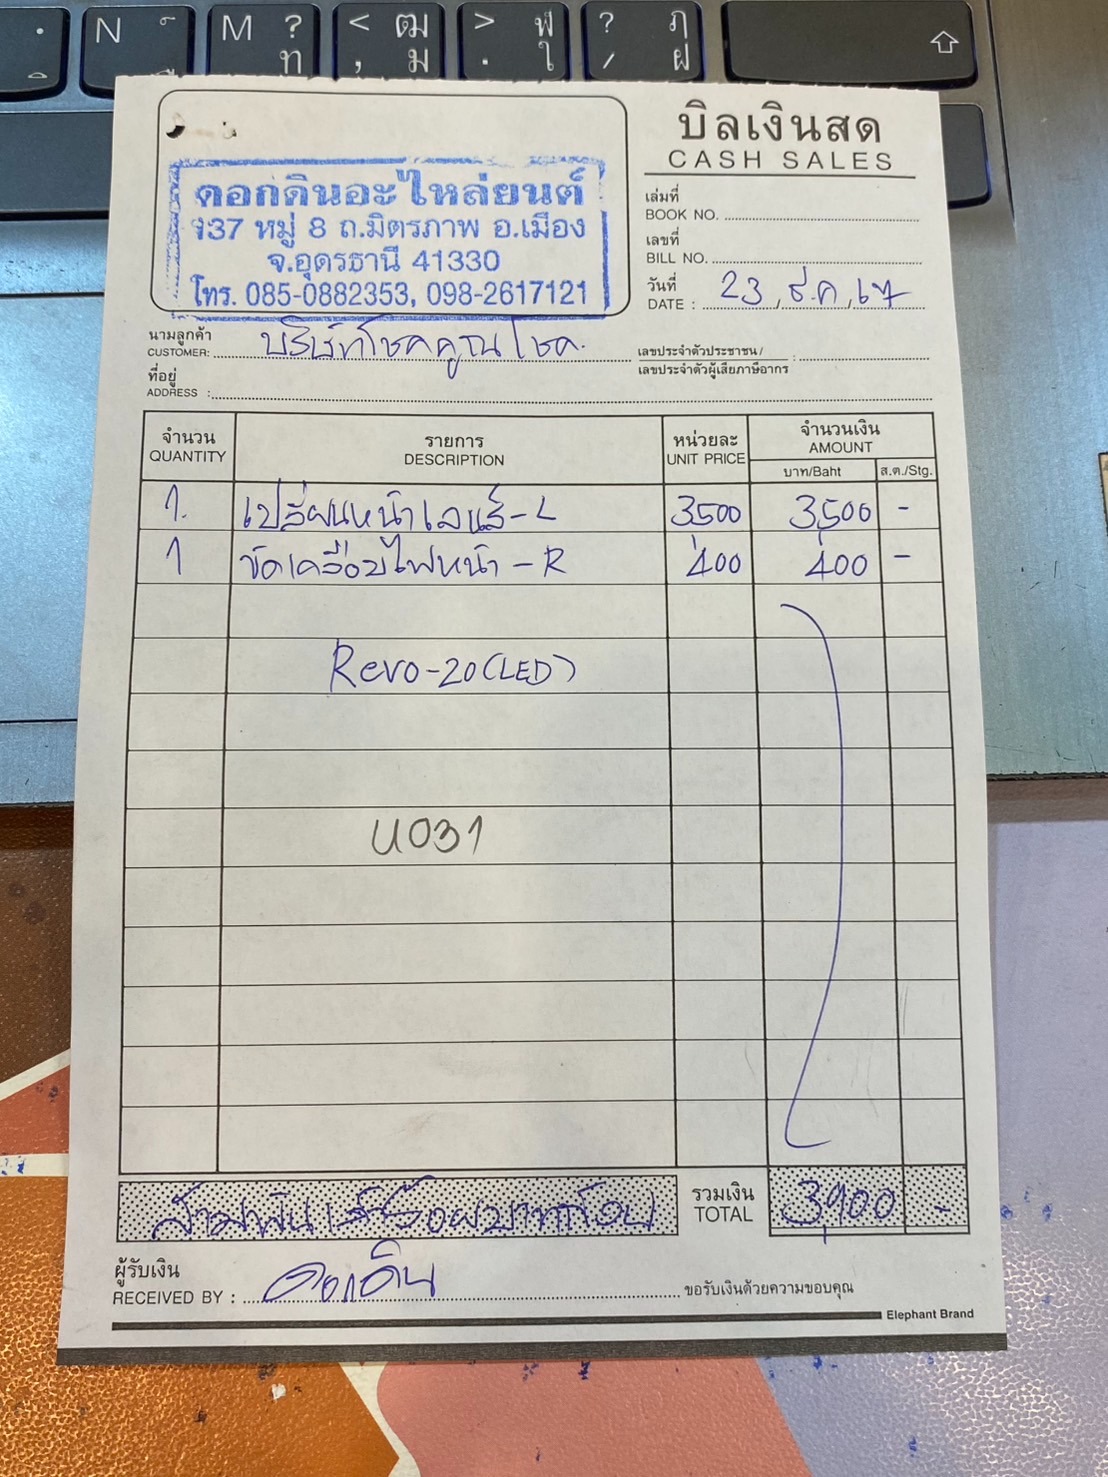 N M ? ท < , ฒ ม > . ฬ ใ ? / ฦ ฝ
บิลเงินสด
CASH SALES
ดอกดินอะไหล่ยนต์
137 หมู่ 8 ถ.มิตรภาพ อ.เมือง
จ.อุดรธานี 41330
โทร. 085-0882353, 098-2617121
เล่มที่
BOOK NO.
เลขที่
BILL NO.
วันที่
DATE : 23 ธ.ค. 67
นามลูกค้า
CUSTOMER: บริษัทโชคคูณโชค.
เลขประจำตัวประชาชน /
เลขประจำตัวผู้เสียภาษีอากร :
ที่อยู่
ADDRESS :
จำนวน รายการ หน่วยละ จำนวนเงิน
QUANTITY DESCRIPTION UNIT PRICE AMOUNT
บาท/Baht ส.ต./Stg.
1. เปลี่ยนหน้าเลนส์-L 3500 3,500 -
1 ขัดเคลือบไฟหน้า-R 400 400 -
Revo-20(LED)
U031
สามพันเก้าร้อยบาทถ้วน รวมเงิน 3,900 -
TOTAL
ผู้รับเงิน
RECEIVED BY : ดอกดิน ขอรับเงินด้วยความขอบคุณ
Elephant Brand